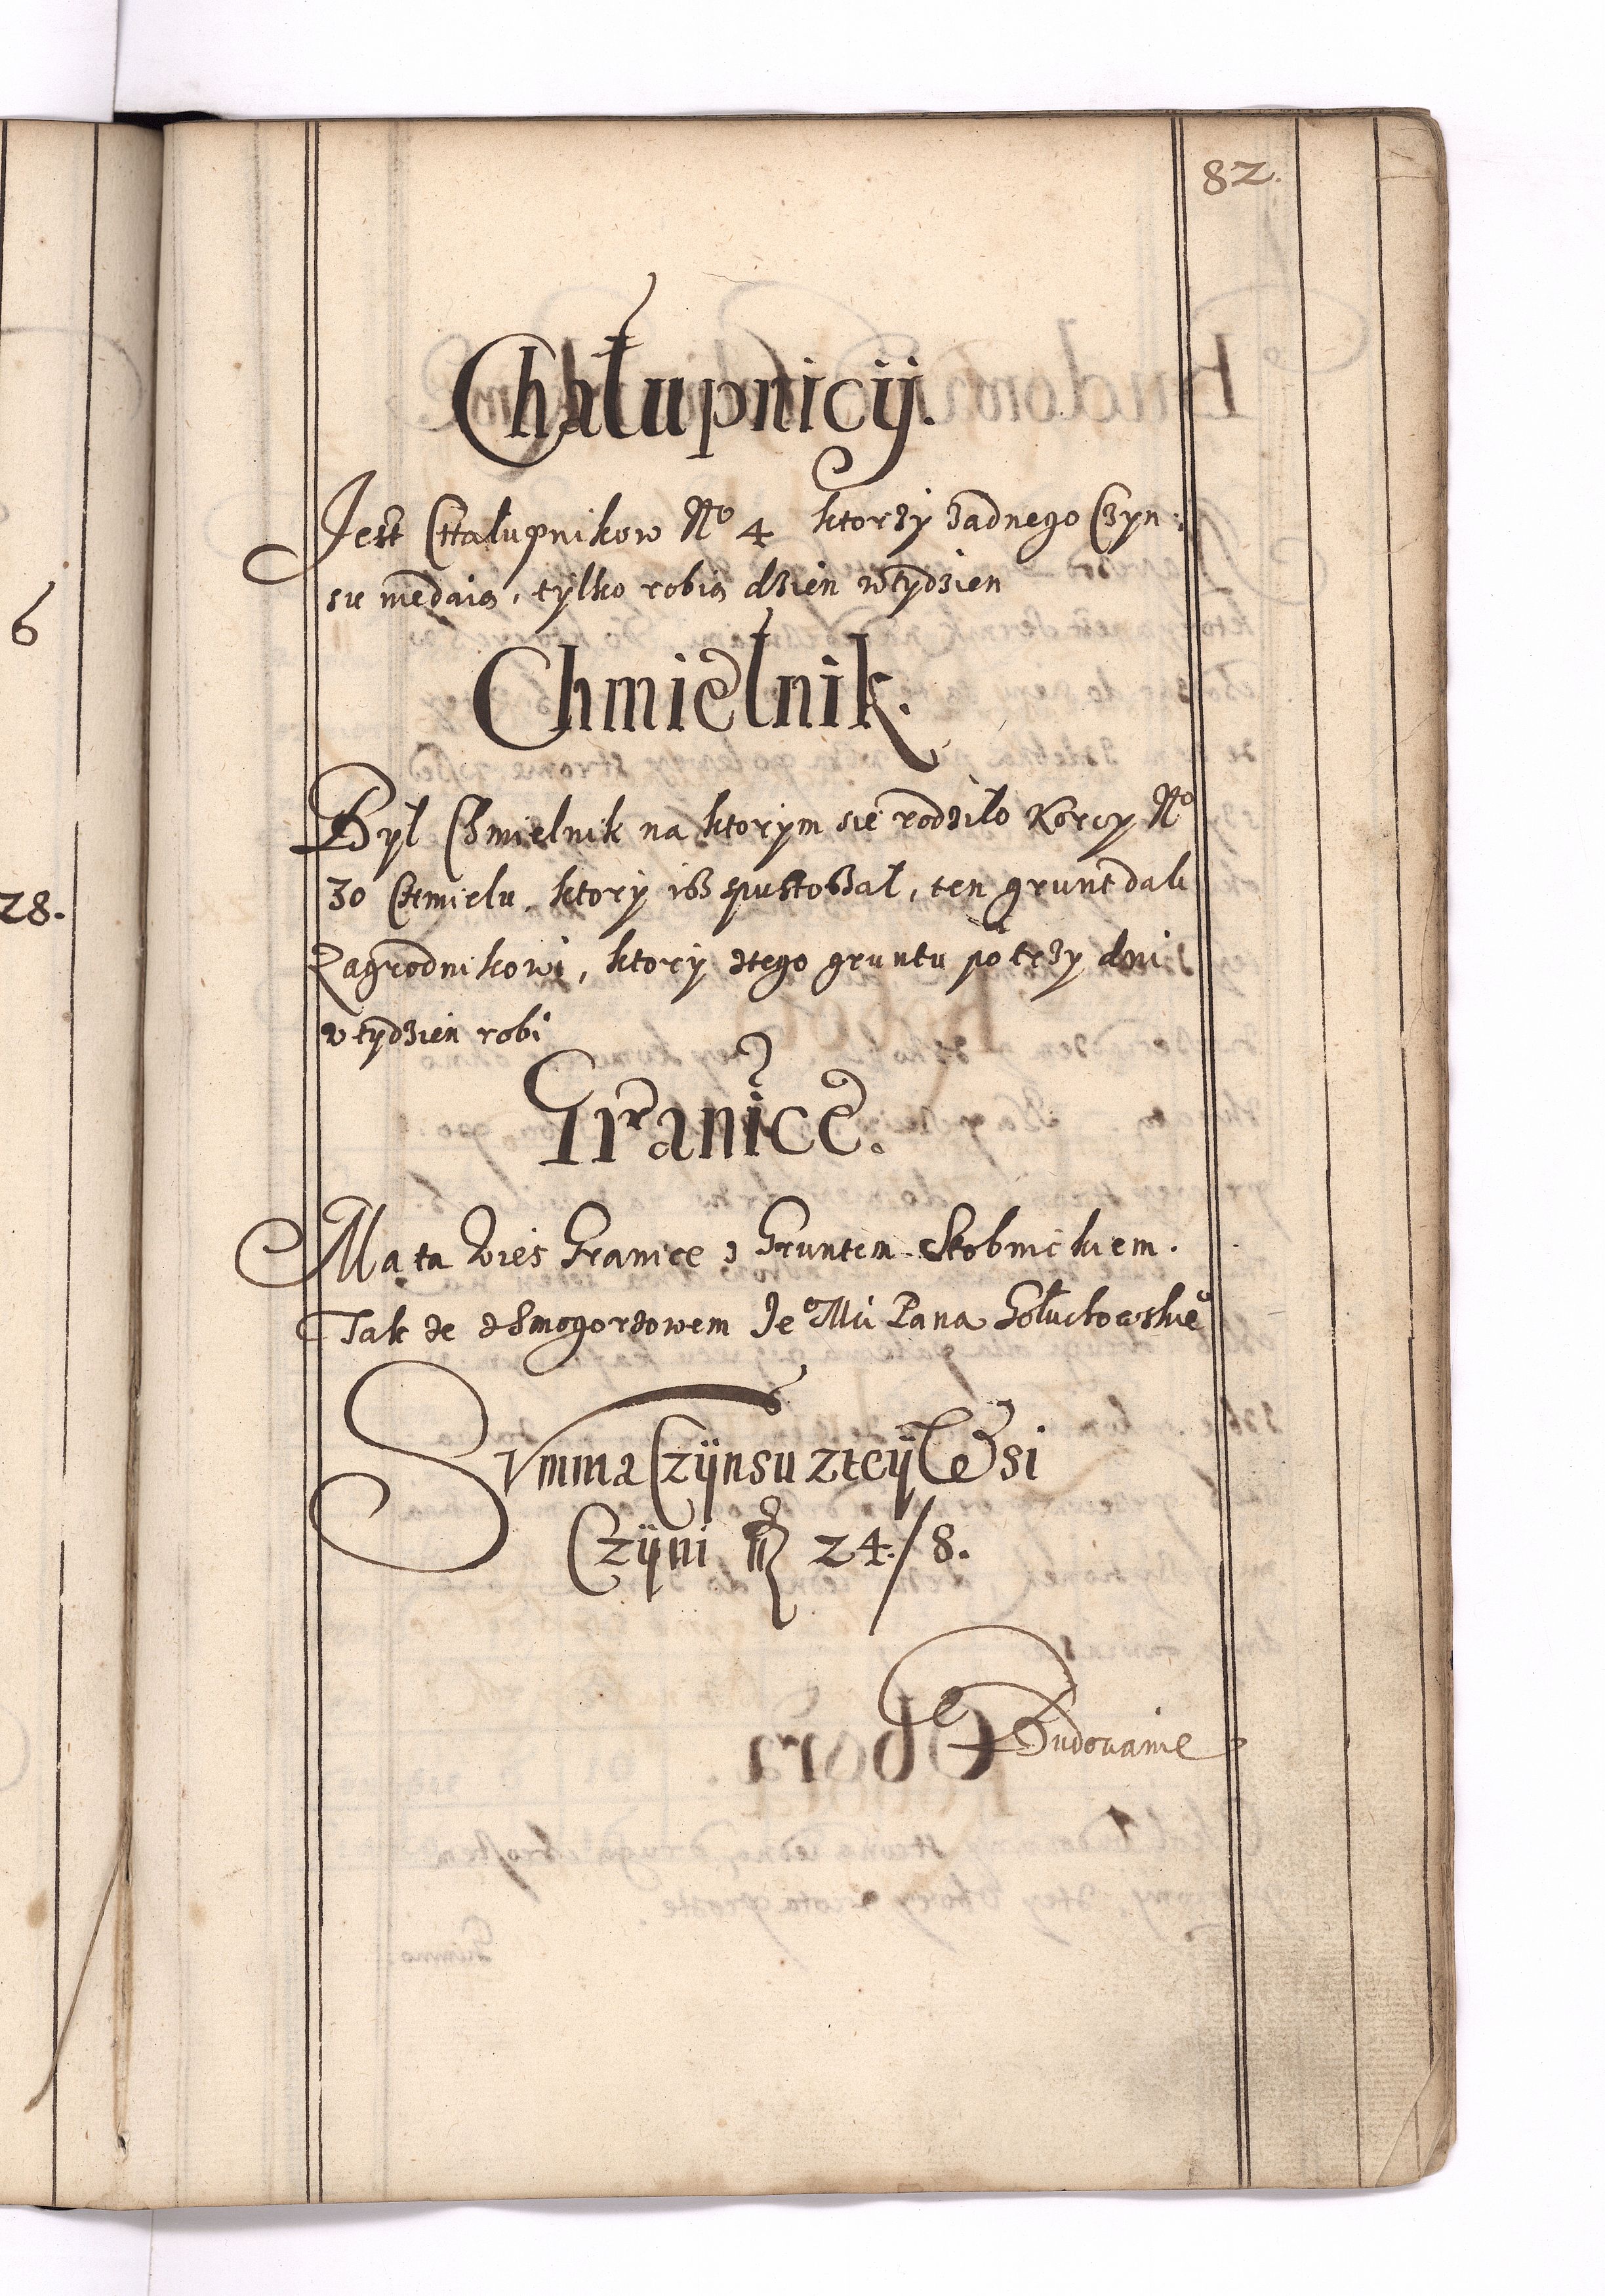 82.
Chałupnicÿ.
Jest Chałupnikow No 4 ktorzÿ zadnego Czyn:
su niedaią, tÿlko robią dzien wtÿdzien
Chmielnik.
Bÿł Chmielnik na ktorÿm sie rodziło Korcy No
30 Chmielu, ktorÿ isz spustoszał, ten grunt dali
Zagrodnikowi, ktorÿ ztego gruntu po trzÿ dni
w tÿdzien robi
Granice.
Ma ta wies Granice z Gruntem Stobnickiem.
Tak ze zSmogorzowem Je Mci Pana Gołuchowskie
Summa Czÿnsu ztcÿ Wsi
Czÿni 24./8.
Budowanie
6
28.